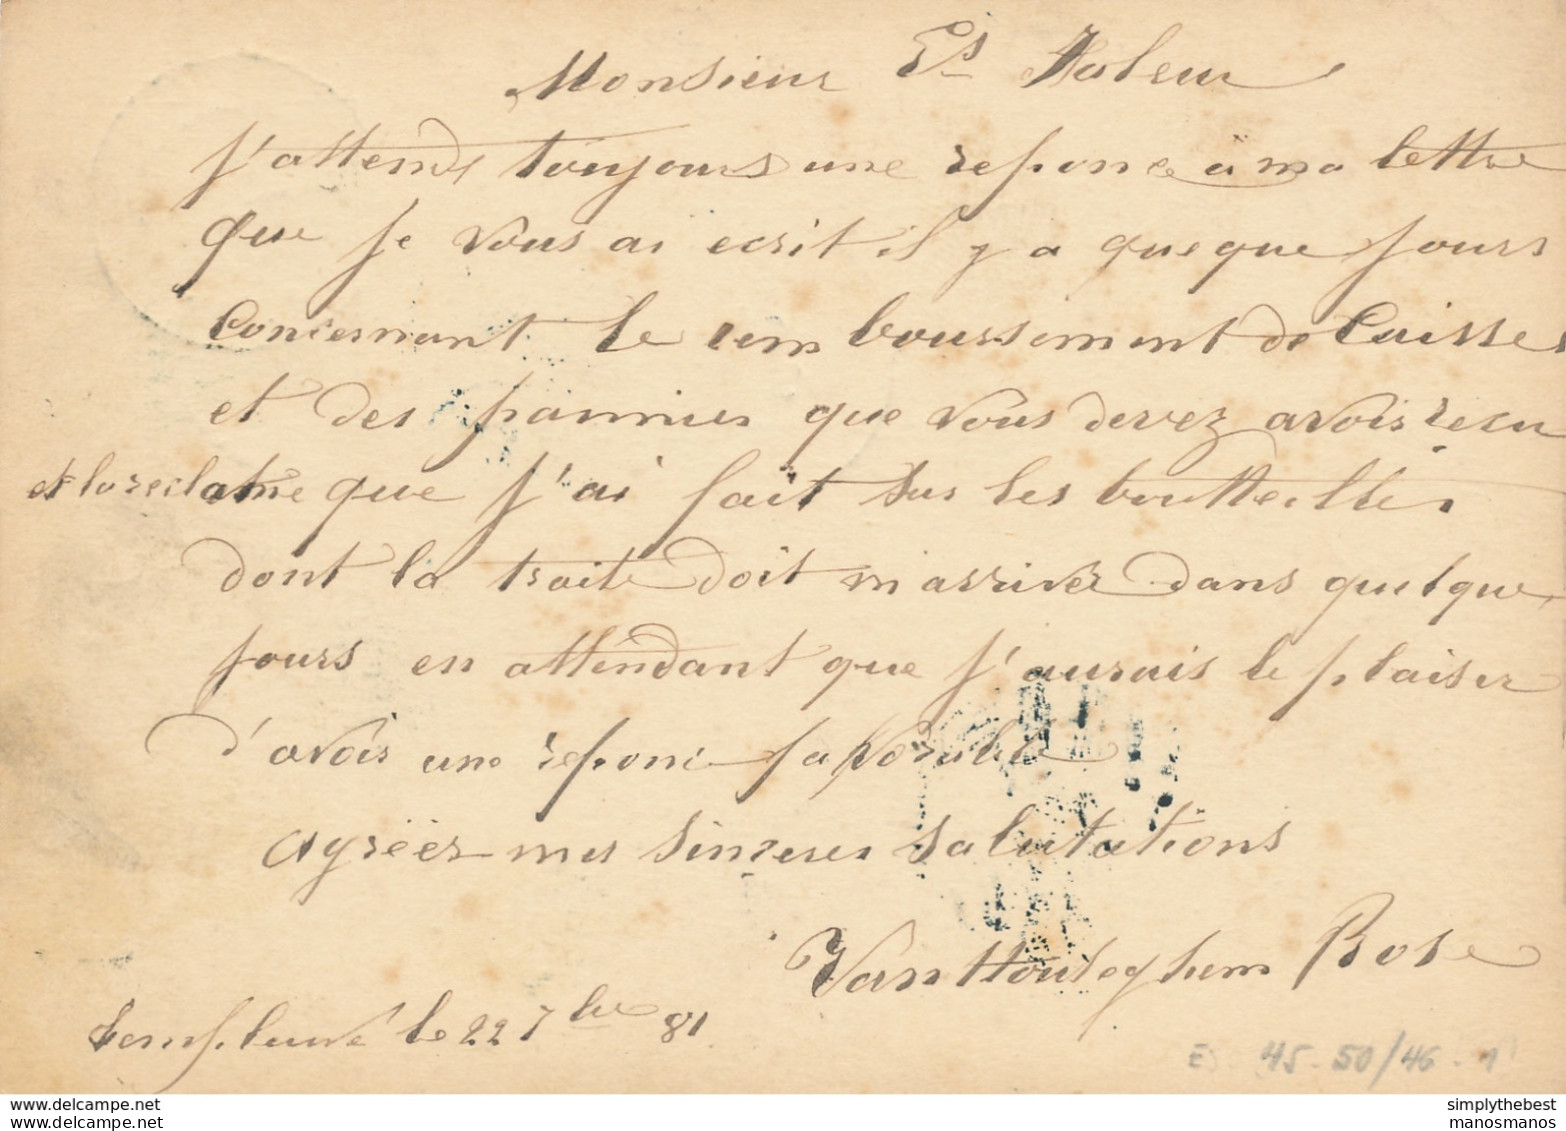 Monsieur Es Haleur
J'attends toujours une reponce à ma lettre
que je vous ai ecrit il y a queque jours
Concernant le remboursement de Caisses
et des panniers que vous devez avoir recu
et la reclame que j'ai fait sur les boutteilles
dont la traite doit m'arriver dans quelque
jours en attendant que j'aurais le plaiser
d'avoir une reponce favorable
Agréer mes sinceres salutations
Van Houteghem Rose
Templeuve le 22 7bre 81
45-50/46-1
simplythebest
manosmanos